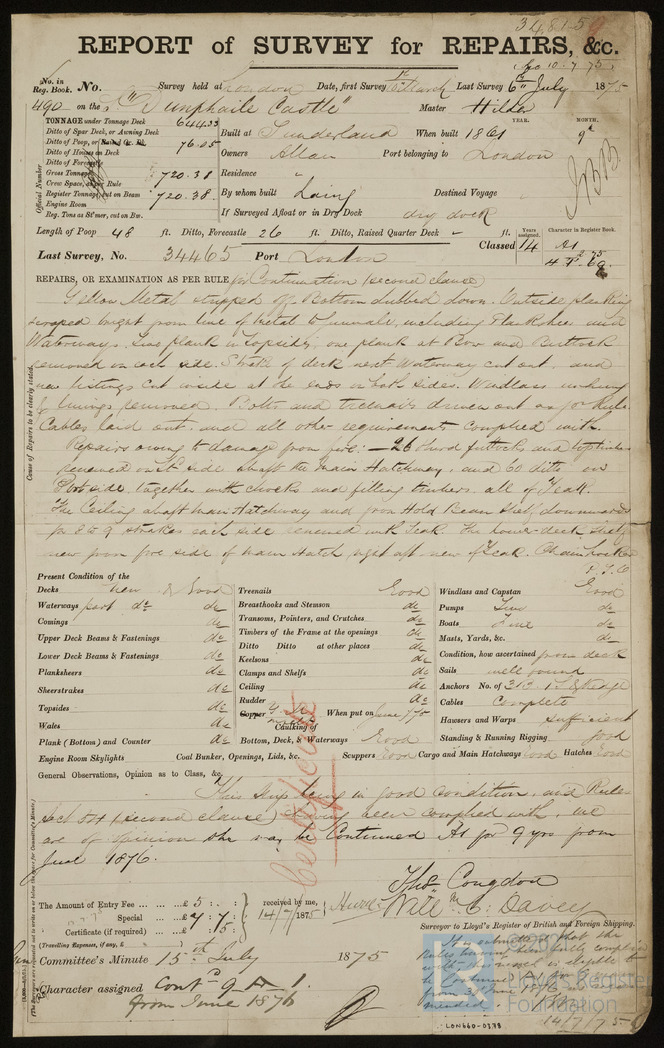 34815
REPORT of SURVEY for REPAIRS, &c.
No. in Reg. Book. No. Survey held at London Date, first Survey Last Survey 6th July 1875
490 on the "Dunphaile Castle" Master
TONNAGE under Tonnage Deck 644.33
Ditto of Spar Deck, or Awning Deck
Ditto of Poop, or 76.05
Ditto of Houses on Deck
Ditto of Forecastle
Gross Tonnage 720.38
Crew Space, as per Rule
Register Tonnage, cut on Beam 720.38
Engine Room
Reg. Tons as St'mer, cut on Bm.
Official Number
Built at Sunderland When built 1861 YEAR. MONTH. 9
Owners Allan Port belonging to London
Residence "
By whom built Laing Destined Voyage
If Surveyed Afloat or in Dry Dock dry dock
Length of Poop 48 ft. Ditto, Forecastle 26 ft. Ditto, Raised Quarter Deck - ft.
Years assigned. Character in Register Book.
Classed 14 A1
Last Survey, No. 34465 Port London
REPAIRS, OR EXAMINATION AS PER RULE for Continuation (second clause)
Cause of Repairs to be clearly stated.
Yellow Metal stripped off. Bottom dubbed down. Outside planking
scraped bright from line of Metal to Gunwale, including Planksheer and
Waterways. Two plank in Topsides, one plank at Bow and Buttock
removed on each side. Strake of deck next Waterway cut out, and
listings cut inside at the ends on both sides. Windlass unhung
& linings removed. Bolts and treenails driven out as per Rule.
Cables laid out, and all other requirements complied with.
Repairs owing to damage from fire: — 26 third futtocks and toptimbers
renewed on side abaft the main Hatchway, and 60 ditto on
Port side, together with chocks and filling timbers all of Teak.
The Ceiling abaft Main Hatchway and from Hold Beam Shelf downwards
for 8 to 9 strakes each side renewed with Teak. The lower deck Shelf
new from fore side of Main Hatch right aft new of Teak.
P.T.O
Present Condition of the
Decks New & Good
Waterways part do do
Comings do
Upper Deck Beams & Fastenings do
Lower Deck Beams & Fastenings do
Planksheers do
Sheerstrakes do
Topsides do
Wales do
Plank (Bottom) and Counter do
Engine Room Skylights Coal Bunker, Openings, Lids, &c.
Treenails Good
Breasthooks and Stemson do
Transoms, Pointers, and Crutches do
Timbers of the Frame at the openings do
Ditto Ditto at other places do
Keelsons do
Clamps and Shelfs do
Ceiling do
Rudder do
Copper When put on June /75
Caulking of
Bottom, Deck, & Waterways Good
Windlass and Capstan Good
Pumps do
Boats do
Masts, Yards, &c. do
Condition, how ascertained from deck
Sails well found
Anchors No. of
Cables Complete
Hawsers and Warps sufficient
Standing & Running Rigging good
Scuppers Good Cargo and Main Hatchways Good Hatches Good
General Observations, Opinion as to Class, &c.
This Ship being in good condition, and Rule
Sect 54 (second clause) having been complied with, we
are of opinion she may be Continued A1 for 9 yrs from
June 1876.
Certificate
Thos Congdon
Will m C. Davey
Surveyor to Lloyd's Register of British and Foreign Shipping.
The Amount of Entry Fee ... £ 5 :
Special ... £ 7 : 7
Certificate (if required) ... £ : 5
(Travelling Expenses, if any, £
received by me,
14/7/1875
Committee's Minute 15th July 1875
Character assigned Contd 9 A 1.
from June 1876
Lloyd's Register Foundation
LON660-0378
14/7/75